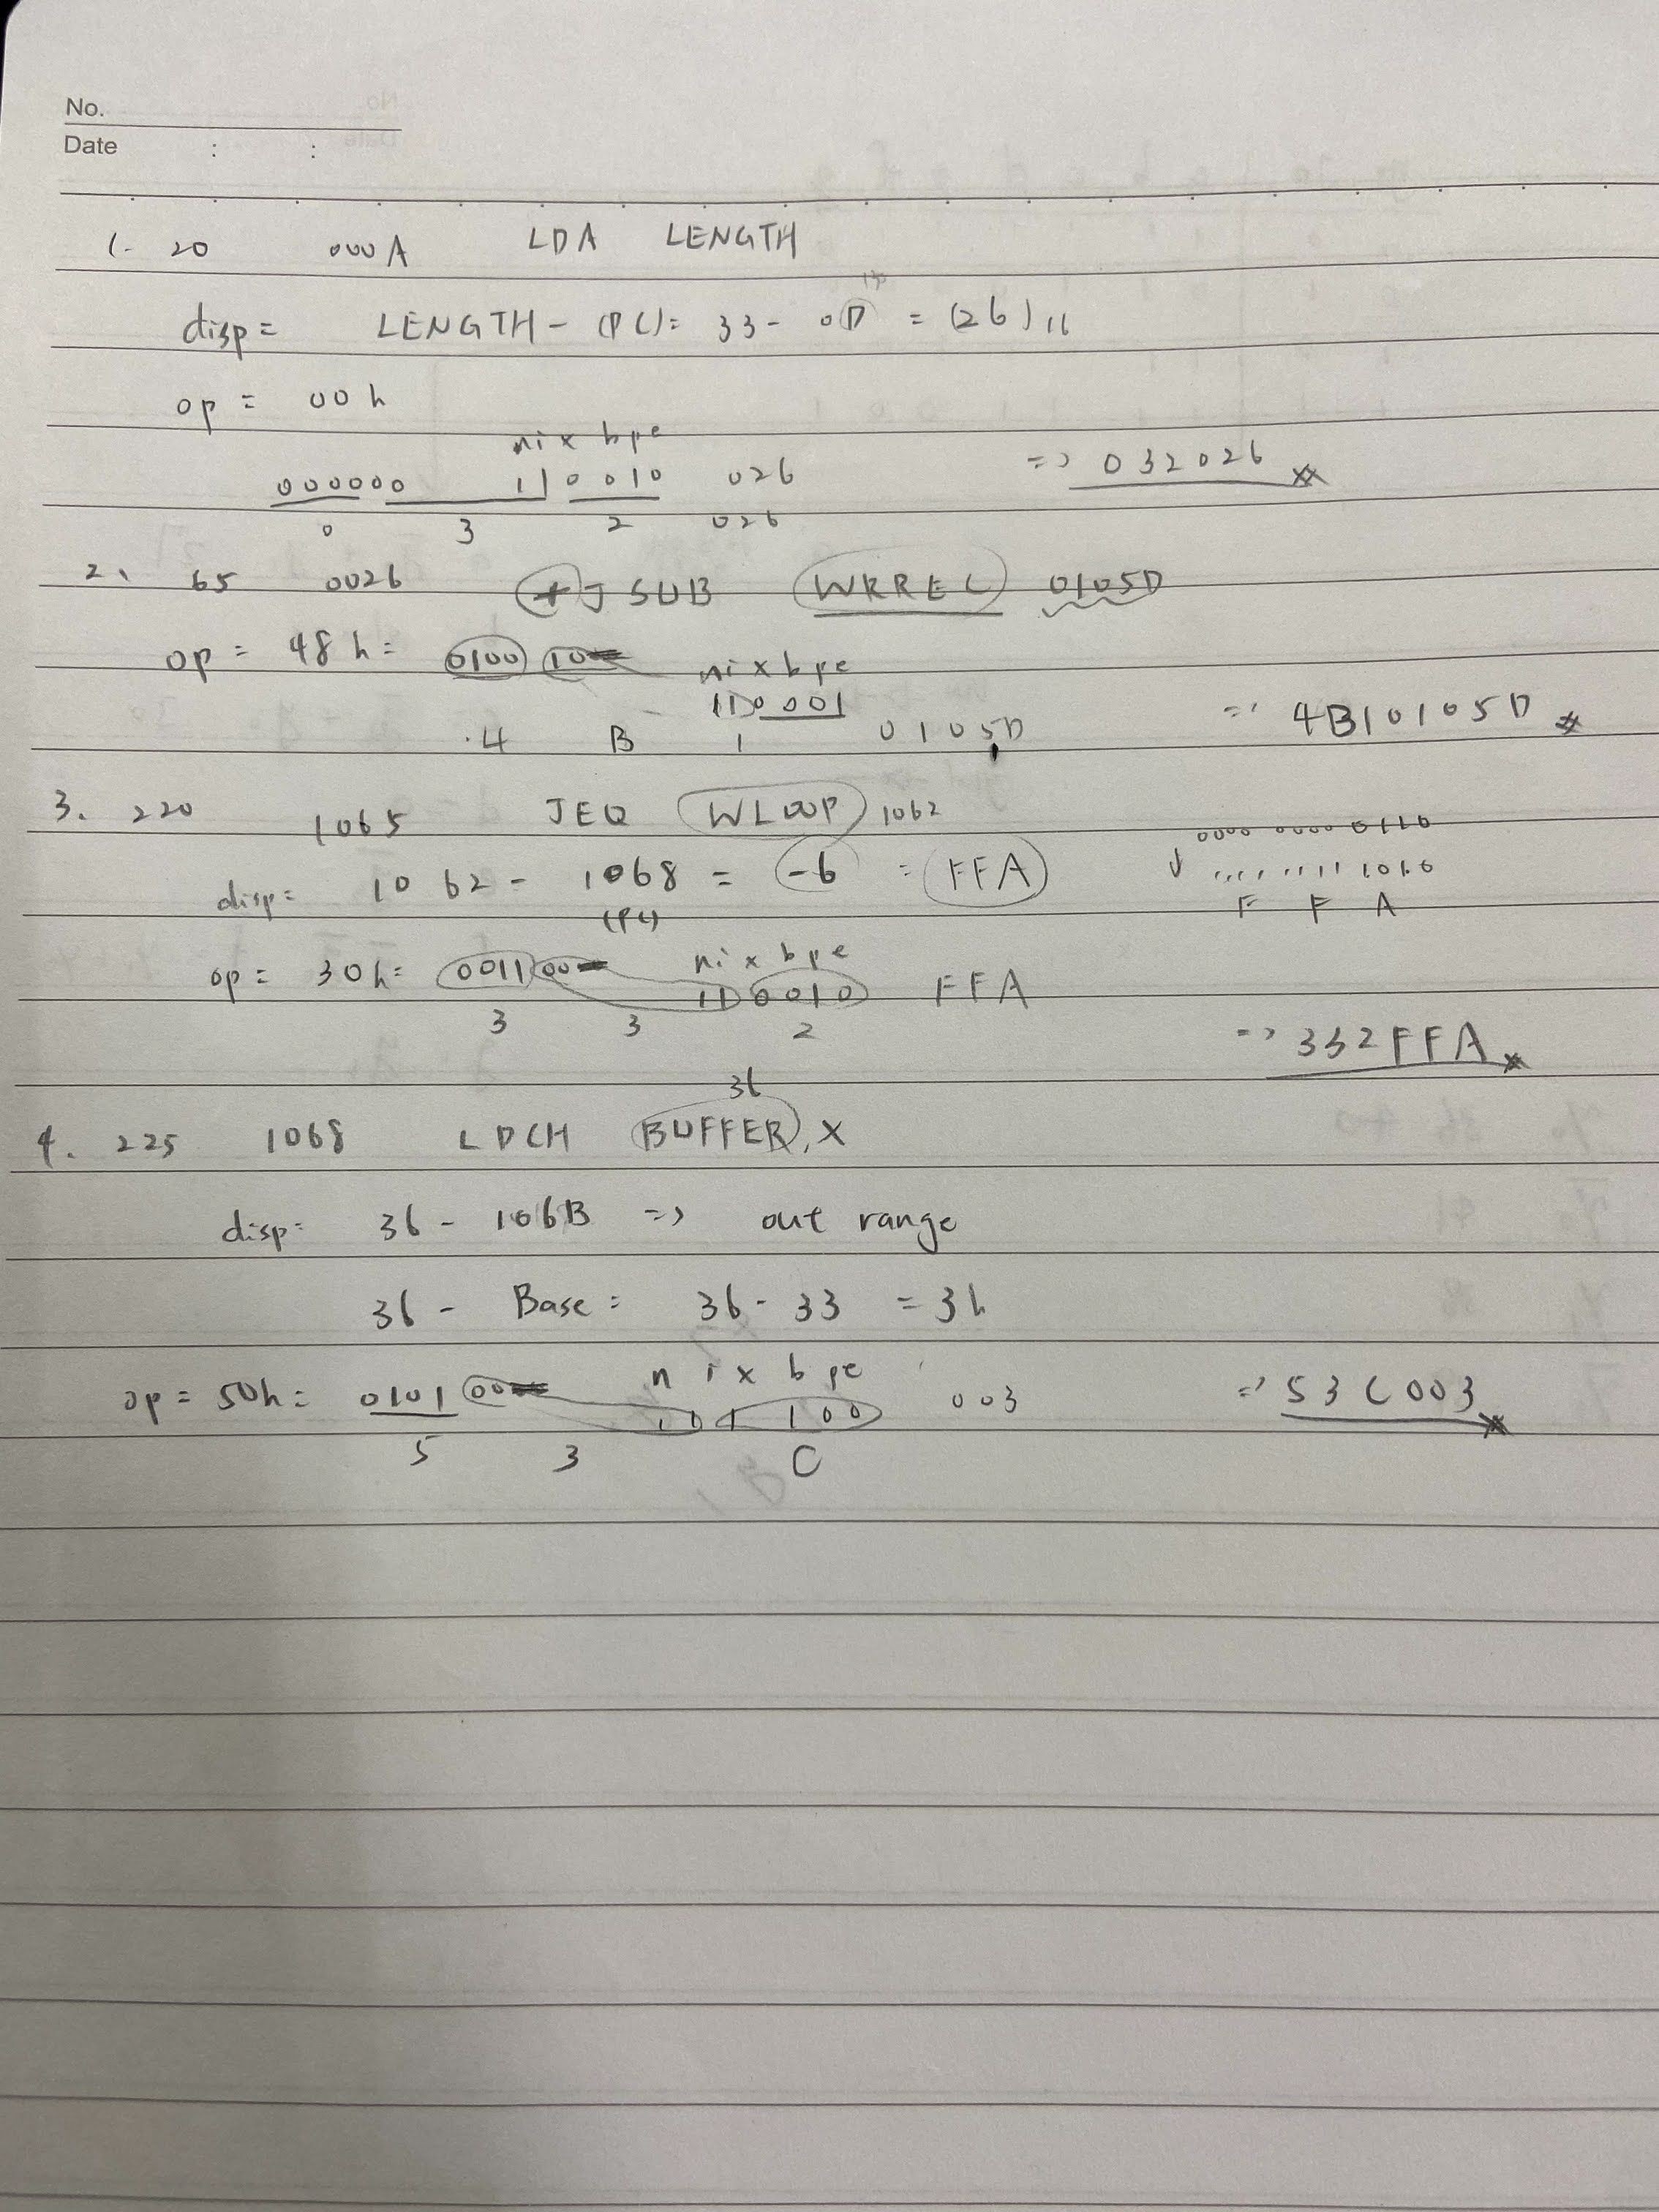 No.
Date : :
1. 20 000A LDA LENGTH
disp = LENGTH - (PC) = 33 - 0D = (26)16
op = 00h
nixbpe
000000 110010 026 => 032026
0 3 2 026
2. 65 0026 +JSUB WRREC 0105D
op = 48h = 0100 10
nixbpe
110001
4 B 1 0105D => 4B10105D
3. 220 1065 JEQ WLOOP 1062
0000 0000 0110
disp = 1062 - 1068 = -6 = FFA
(PC)
1111 1111 1010
F F A
op = 30h = 0011 00
nixbpe
110010 FFA
3 3 2
=> 332FFA
36
4. 225 1068 LDCH BUFFER, X
disp = 36 - 106B => out range
36 - Base = 36 - 33 = 3h
nixbpe
op = 50h = 0101 00 111100 003 => 53C003
5 3 C